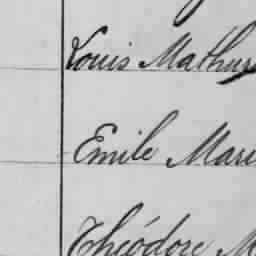 Louis Mathur
Emile Mari
Théodore M